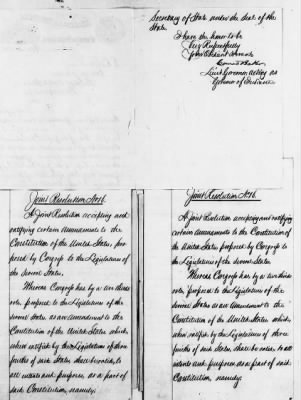 Secretary of State under the Seal of the
State.
I have the honor to be
Very Respectfully
Your Obedient Servant
Conrad Baker
Lieut Governor acting as
Governor of Indiana
Joint Resolution No 16.
A Joint Resolution accepting and
ratifying certain amendments to the
Constitution of the United States, pro-
posed by Congress to the Legislatures of
the several States.
Whereas Congress has by a two thirds
vote proposed to the Legislatures of the
several States as an amendment to the
Constitution of the United States which
when ratified by the Legislatures of three
fourths of said States shall be valid, to
all intents and purposes, as a part of
said Constitution, namely:
Joint Resolution No 16.
A Joint Resolution accepting and ratifying
certain amendments to the Constitution of
the United States proposed by Congress to
the Legislatures of the several States.
Whereas Congress has by a two thirds
vote proposed to the Legislatures of the
several States as an amendment to the
Constitution of the United States, which
when ratified by the Legislatures of three
fourths of said States, shall be valid, to all
intents and purposes as a part of said
Constitution, namely: